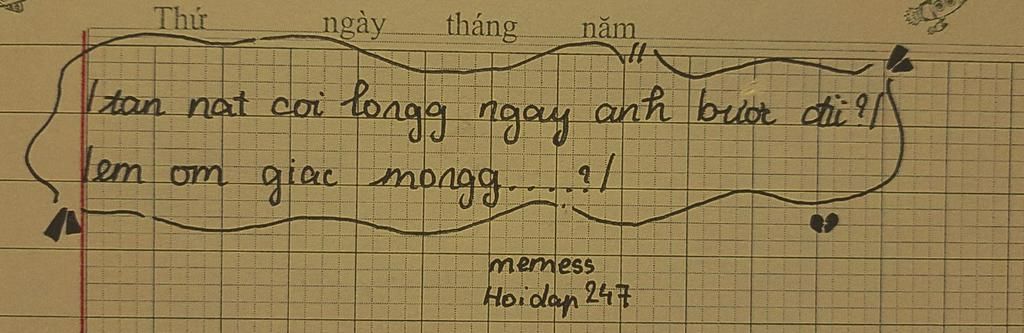 Thứ ngày tháng năm
/tan nat coi longg ngay anh buoc đii?/
/em om giac mongg.....?/
memess
Hoidap247